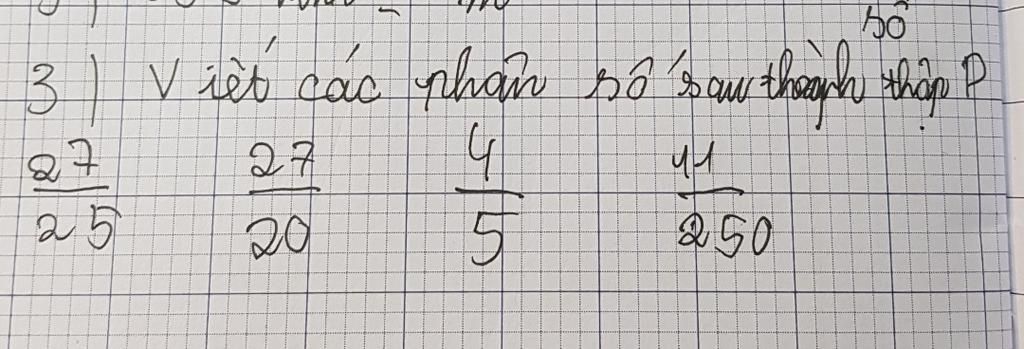 số
3) Viết các phân số sau thành thập P
27/25 27/20 4/5 41/250